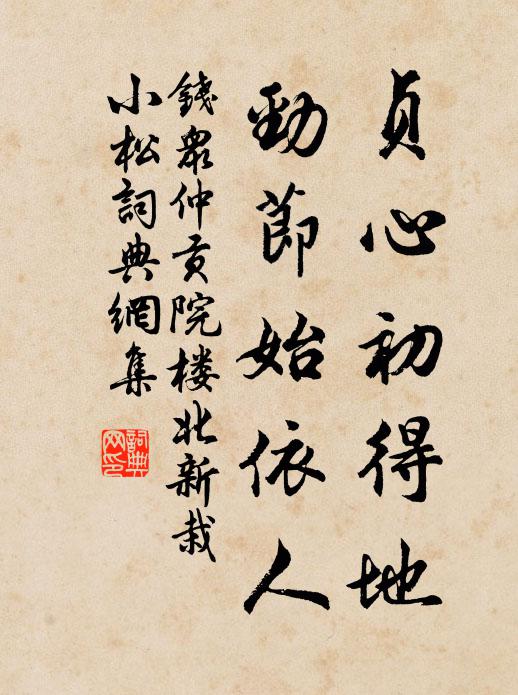 貞心初得地
勁節始依人
錢眾仲貢院楼北新栽
小松詞典網集
詞典網印